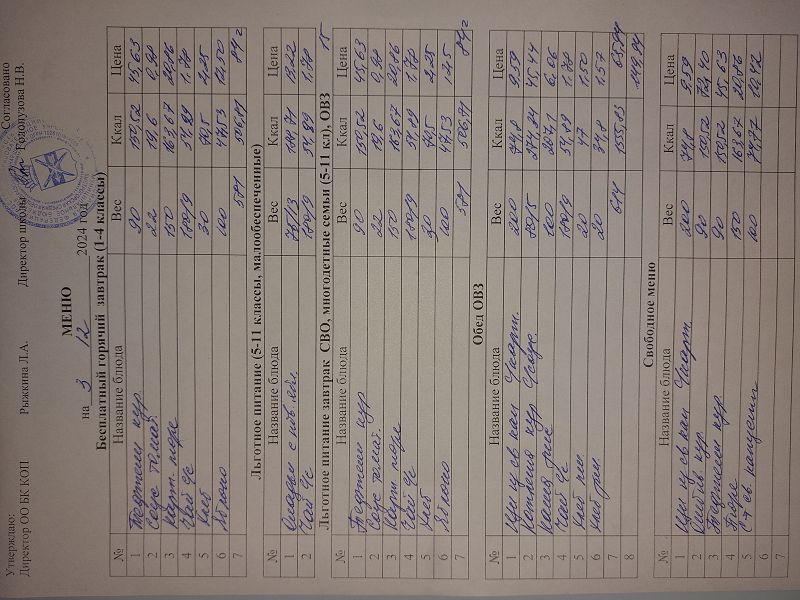 Утверждаю: Согласовано
Директор ОО БК КОП Рыжкина Л.А. Директор школы Голопузова Н.В.
МЕНЮ
на 3 12 2024 год
Бесплатный горячий завтрак (1-4 классы)
№ Название блюда Вес Ккал Цена
1 Тефтели кур. 90 150,52 45,63
2 Соус томат. 22 19,6 0,98
3 Карт. пюре 150 163,67 20,86
4 Чай с/с 180/9 54,89 1.78
5 Хлеб 30 70,5 2.25
6 Яблоко 100 47,53 12.50
7 581 506,71 84=
Льготное питание (5-11 классы, малообеспеченные)
№ Название блюда Вес Ккал Цена
1 Оладьи с 75/13 13,22
2 Чай с/с 180/9 54,89 1.78
15
Льготное питание завтрак СВО, многодетные семьи (5-11 кл), ОВЗ
№ Название блюда Вес Ккал Цена
1 Тефтели кур 90 150,52 45,63
2 Соус томат. 22 19,6 0,98
3 Карт. пюре 150 163,67 20,86
4 Чай с/с 180/9 54,89 1.78
5 Хлеб 30 70,5 2.25
6 Яблоко 100 47,53
7 581 506,71 84=
Обед ОВЗ
№ Название блюда Вес Ккал Цена
1 Щи из св кап 200 74,8 9.59
2 кур 45,44
3 Каша 6,06
4 Чай с/с 180/9 54,89 1.78
5 Хлеб 20 47 1.50
6 Хлеб рж. 20 34,8 1.57
7 614 1555,83
8
Свободное меню
№ Название блюда Вес Ккал Цена
1 Щи из св кап 200 74,8 9.59
2 кур. 90 150,52 72,40
3 Тефтели кур. 90 150,52 45.63
4 Пюре 150 163.67 20,86
5 С-т св. капусты 100 74,77
6
7